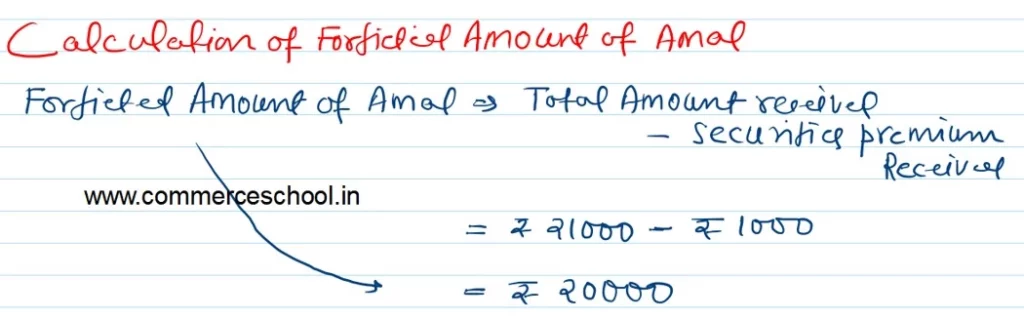 Calculation of Forfieted Amount of Amal
Forfieted Amount of Amal ⇒ Total Amount received
– securities premium
Received
www.commerceschool.in
= ₹ 21000 – ₹ 1000
= ₹ 20000